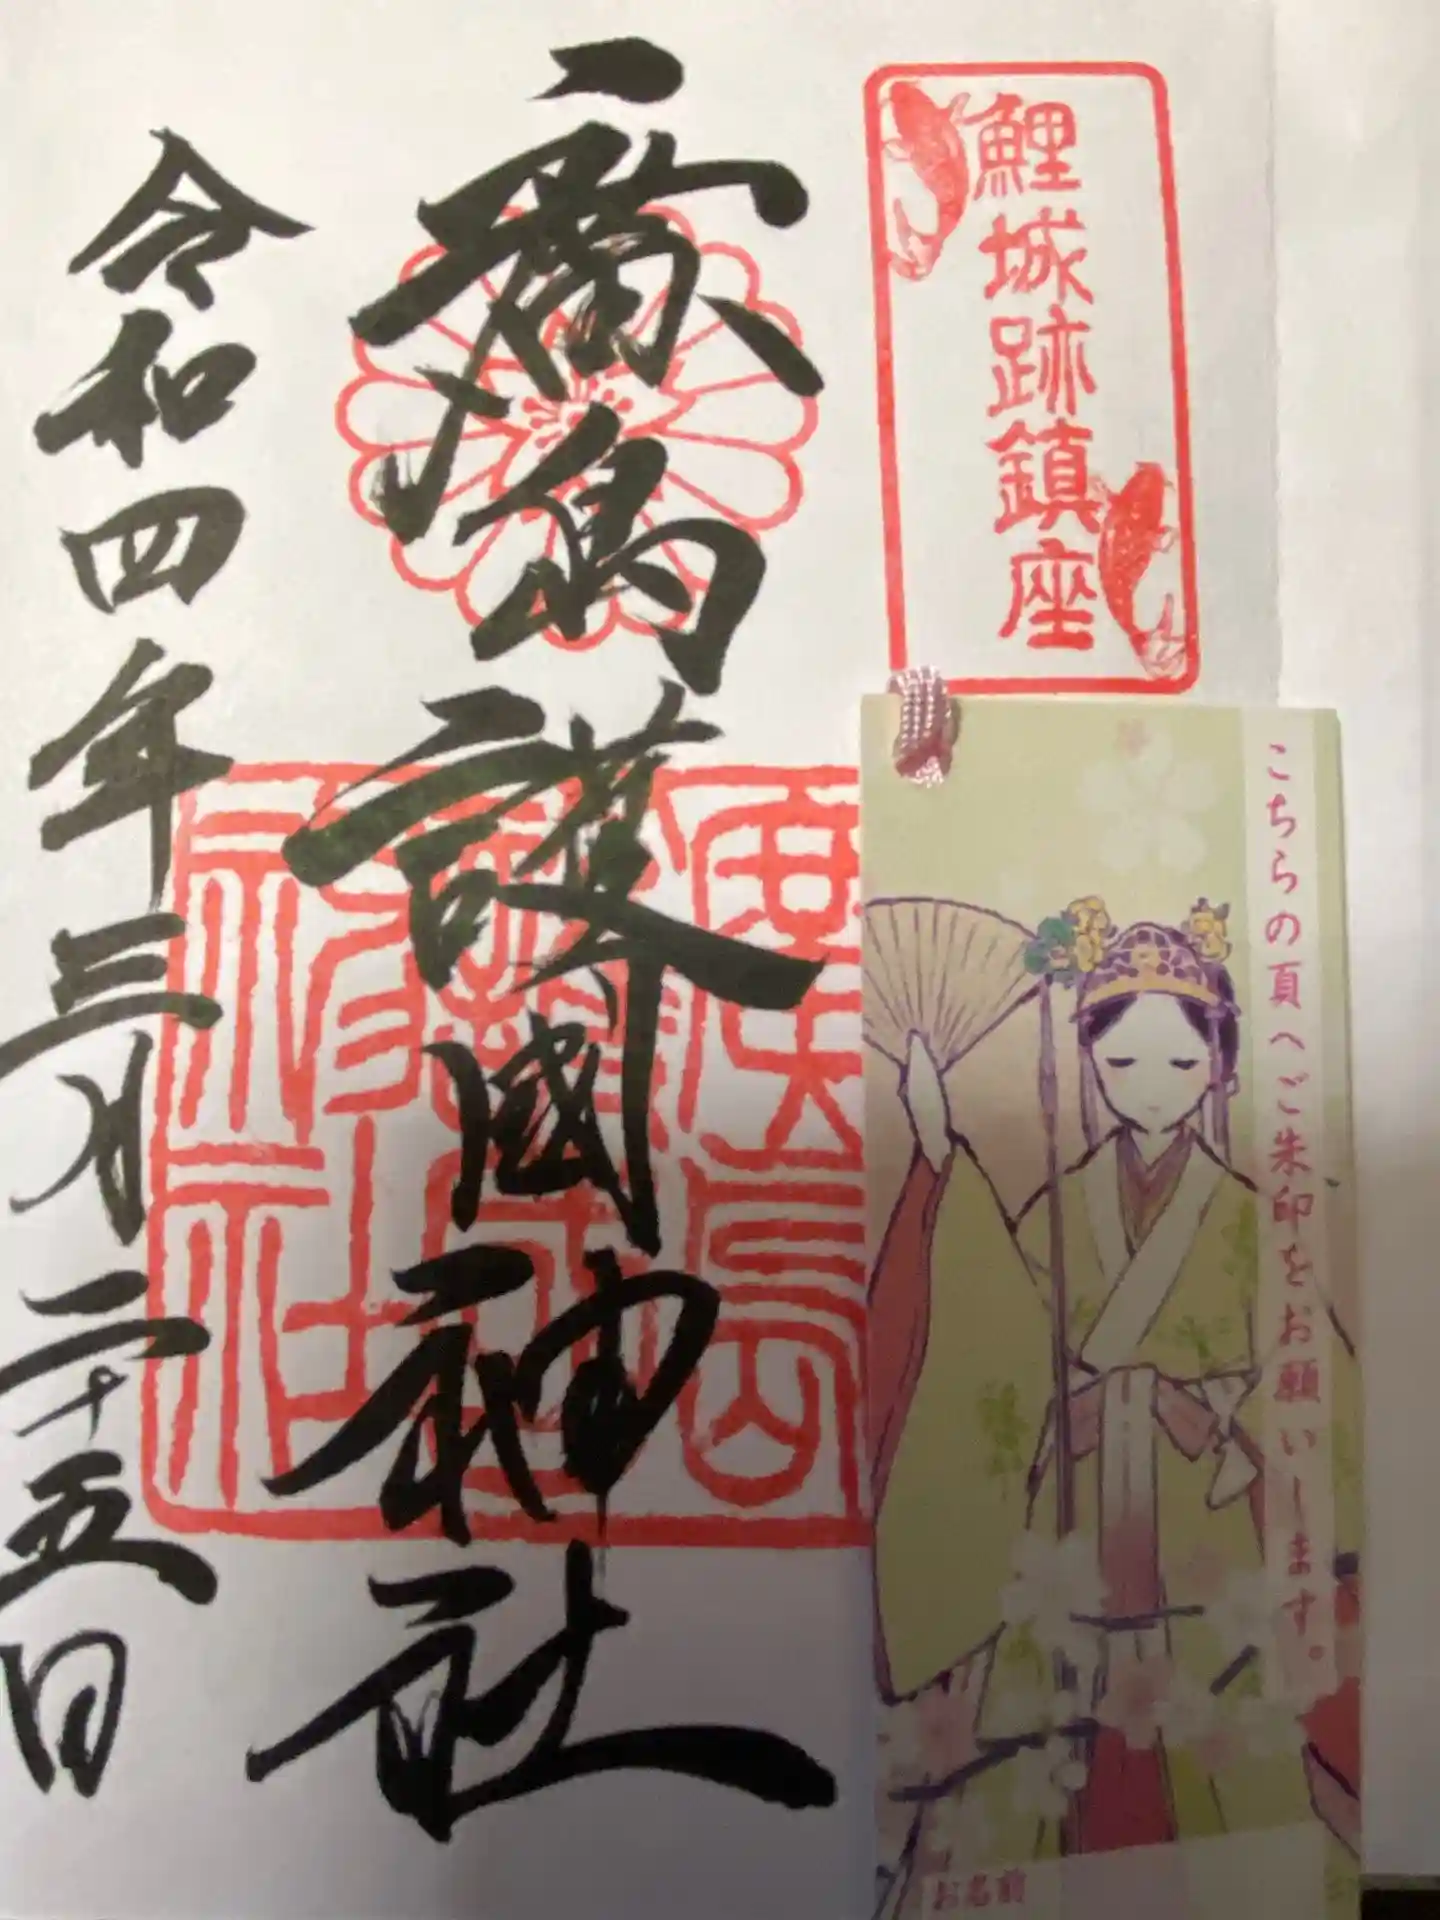 鯉城跡鎮座
廣島護國神社
令和四年三月二十五日
廣島護國神社
こちらの頁へご朱印をお願いします。
お名前